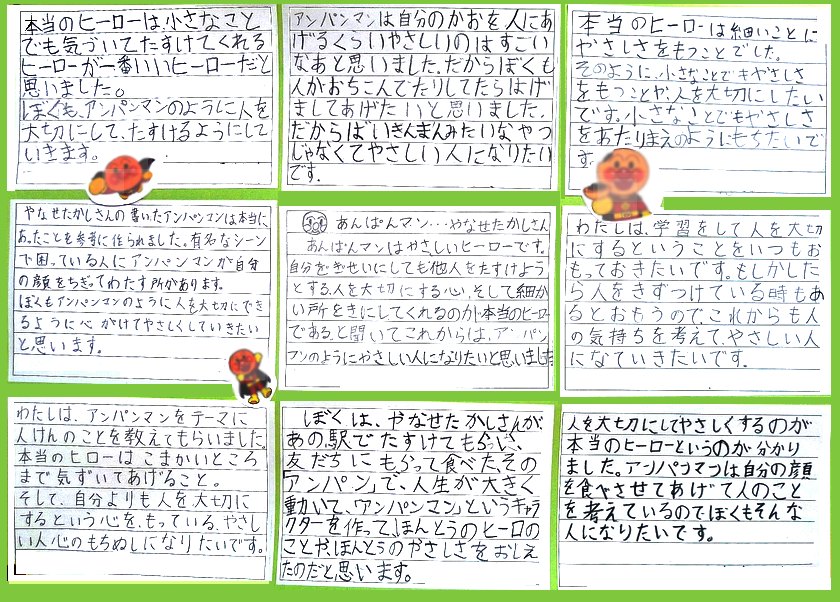 本当のヒーローは、小さなこと
でも気づいてたすけてくれる
ヒーローが一番いいヒーローだと
思いました。
ぼくも、アンパンマンのように人を
大切にして、たすけるようにして
いきます。
アンパンマンは自分のかおを人にあ
げるくらいやさしいのはすごい
なあと思いました。だからぼくも
人がおちこんでたりしてたらはげ
ましてあげたいと思いました。
だからばいきんまんみたいなやつ
じゃなくてやさしい人になりたい
です。
本当のヒーローは細いことに
やさしさをもつことでした。
そのように、小さなことでもやさしさ
をもつことや、人を大切にしたい
です。小さなことでもやさしさ
をあたりまえのようにもちたいで
す。
やなせたかしさんの書いたアンパンマンは本当に
あったことを参考に作られました。有名なシーン
で困っている人にアンパンマンが自分
の顔をちぎってわたす所があります。
ぼくもアンパンマンのように人を大切にでき
るように心がけてやさしくしていきたい
と思います。
あんぱんマン…やなせたかしさん
あんぱんマンはやさしいヒーローです。
自分をぎせいにしても他人をたすけよう
とする人を大切にする心、そして細か
い所をきにしてくれるのが本当のヒーロー
であると聞いてこれからは、アンパン
マンのようにやさしい人になりたいと思いました
わたしは、学習をして人を大切
にするということをいつもお
もっておきたいです。もしかした
ら人をきずつけている時もあ
るとおもうので、これからも人
の気持ちを考えて、やさしい人
になていきたいです。
わたしは、アンパンマンをテーマに
人けんのことを教えてもらいました。
本当のヒローはこまかいところ
まで気ずいてあげること。
そして、自分よりも人を大切に
するという心を、もっている、やさし
い人心のもちぬしになりたいです。
ぼくは、やなせたかしさんが、
あの駅でたすけてもらい、
友だちにもらって食べた、その
「アンパン」で、人生が大きく
動いて、「アンパンマン」というキャラ
クターを作って、ほんとうのヒーロの
ことや、ほんとうのやさしさをおしえ
たのだと思います。
人を大切にしてやさしくするのが
本当のヒーローというのが分かり
ました。アンパンマンは自分の顔
を食べさせてあげて人のこと
を考えているのでぼくもそんな
人になりたいです。